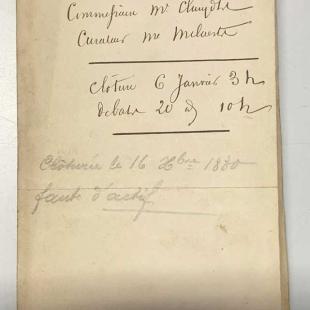 Commissaire Mr
Curateur me
Cloture 6 Janvier 3 h
Debats 20 dº 10 h
Clôturée le 16 Xbre 1880
faute d'actif